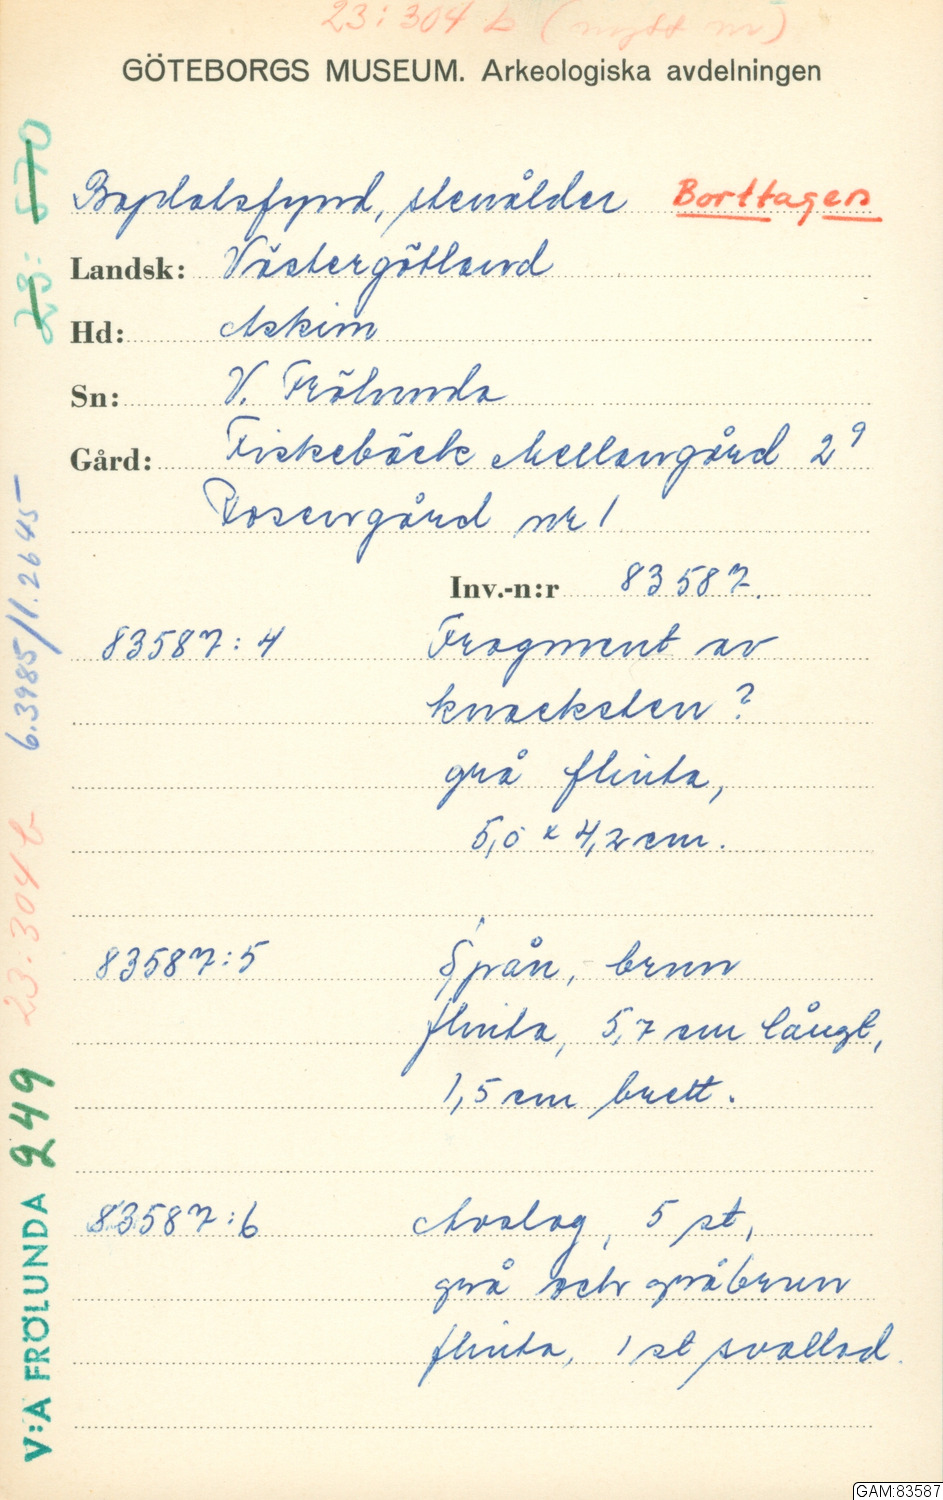 23:304 b (nytt nr)
GÖTEBORGS MUSEUM. Arkeologiska avdelningen
Boplatsfynd, stenålder Borttagen
Landsk: Västergötland
Hd: Askim
Sn: V. Frölunda
Gård: Fiskebäck Mellangård 2⁹
Rosengård nr 1
Inv.-n:r 83587.
83587:4 Fragment av
knacksten?
grå flinta,
5,0 x 4,2 cm.
83587:5 Spån, brun
flinta, 5,7 cm långt,
1,5 cm brett.
83587:6 Avslag, 5 st,
grå och gråbrun
flinta, 1 st svallad.
V:A FRÖLUNDA 249
23:304 b
6.3985/1.2645
23:570
GAM:83587